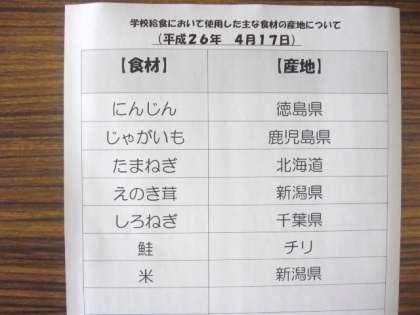 学校給食において使用した主な食材の産地について
(平成26年 4月17日)
【食材】 【産地】
にんじん 徳島県
じゃがいも 鹿児島県
たまねぎ 北海道
えのき茸 新潟県
しろねぎ 千葉県
鮭 チリ
米 新潟県